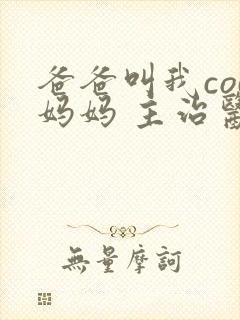 爸爸叫我co
妈妈 主治醫
無量摩訶